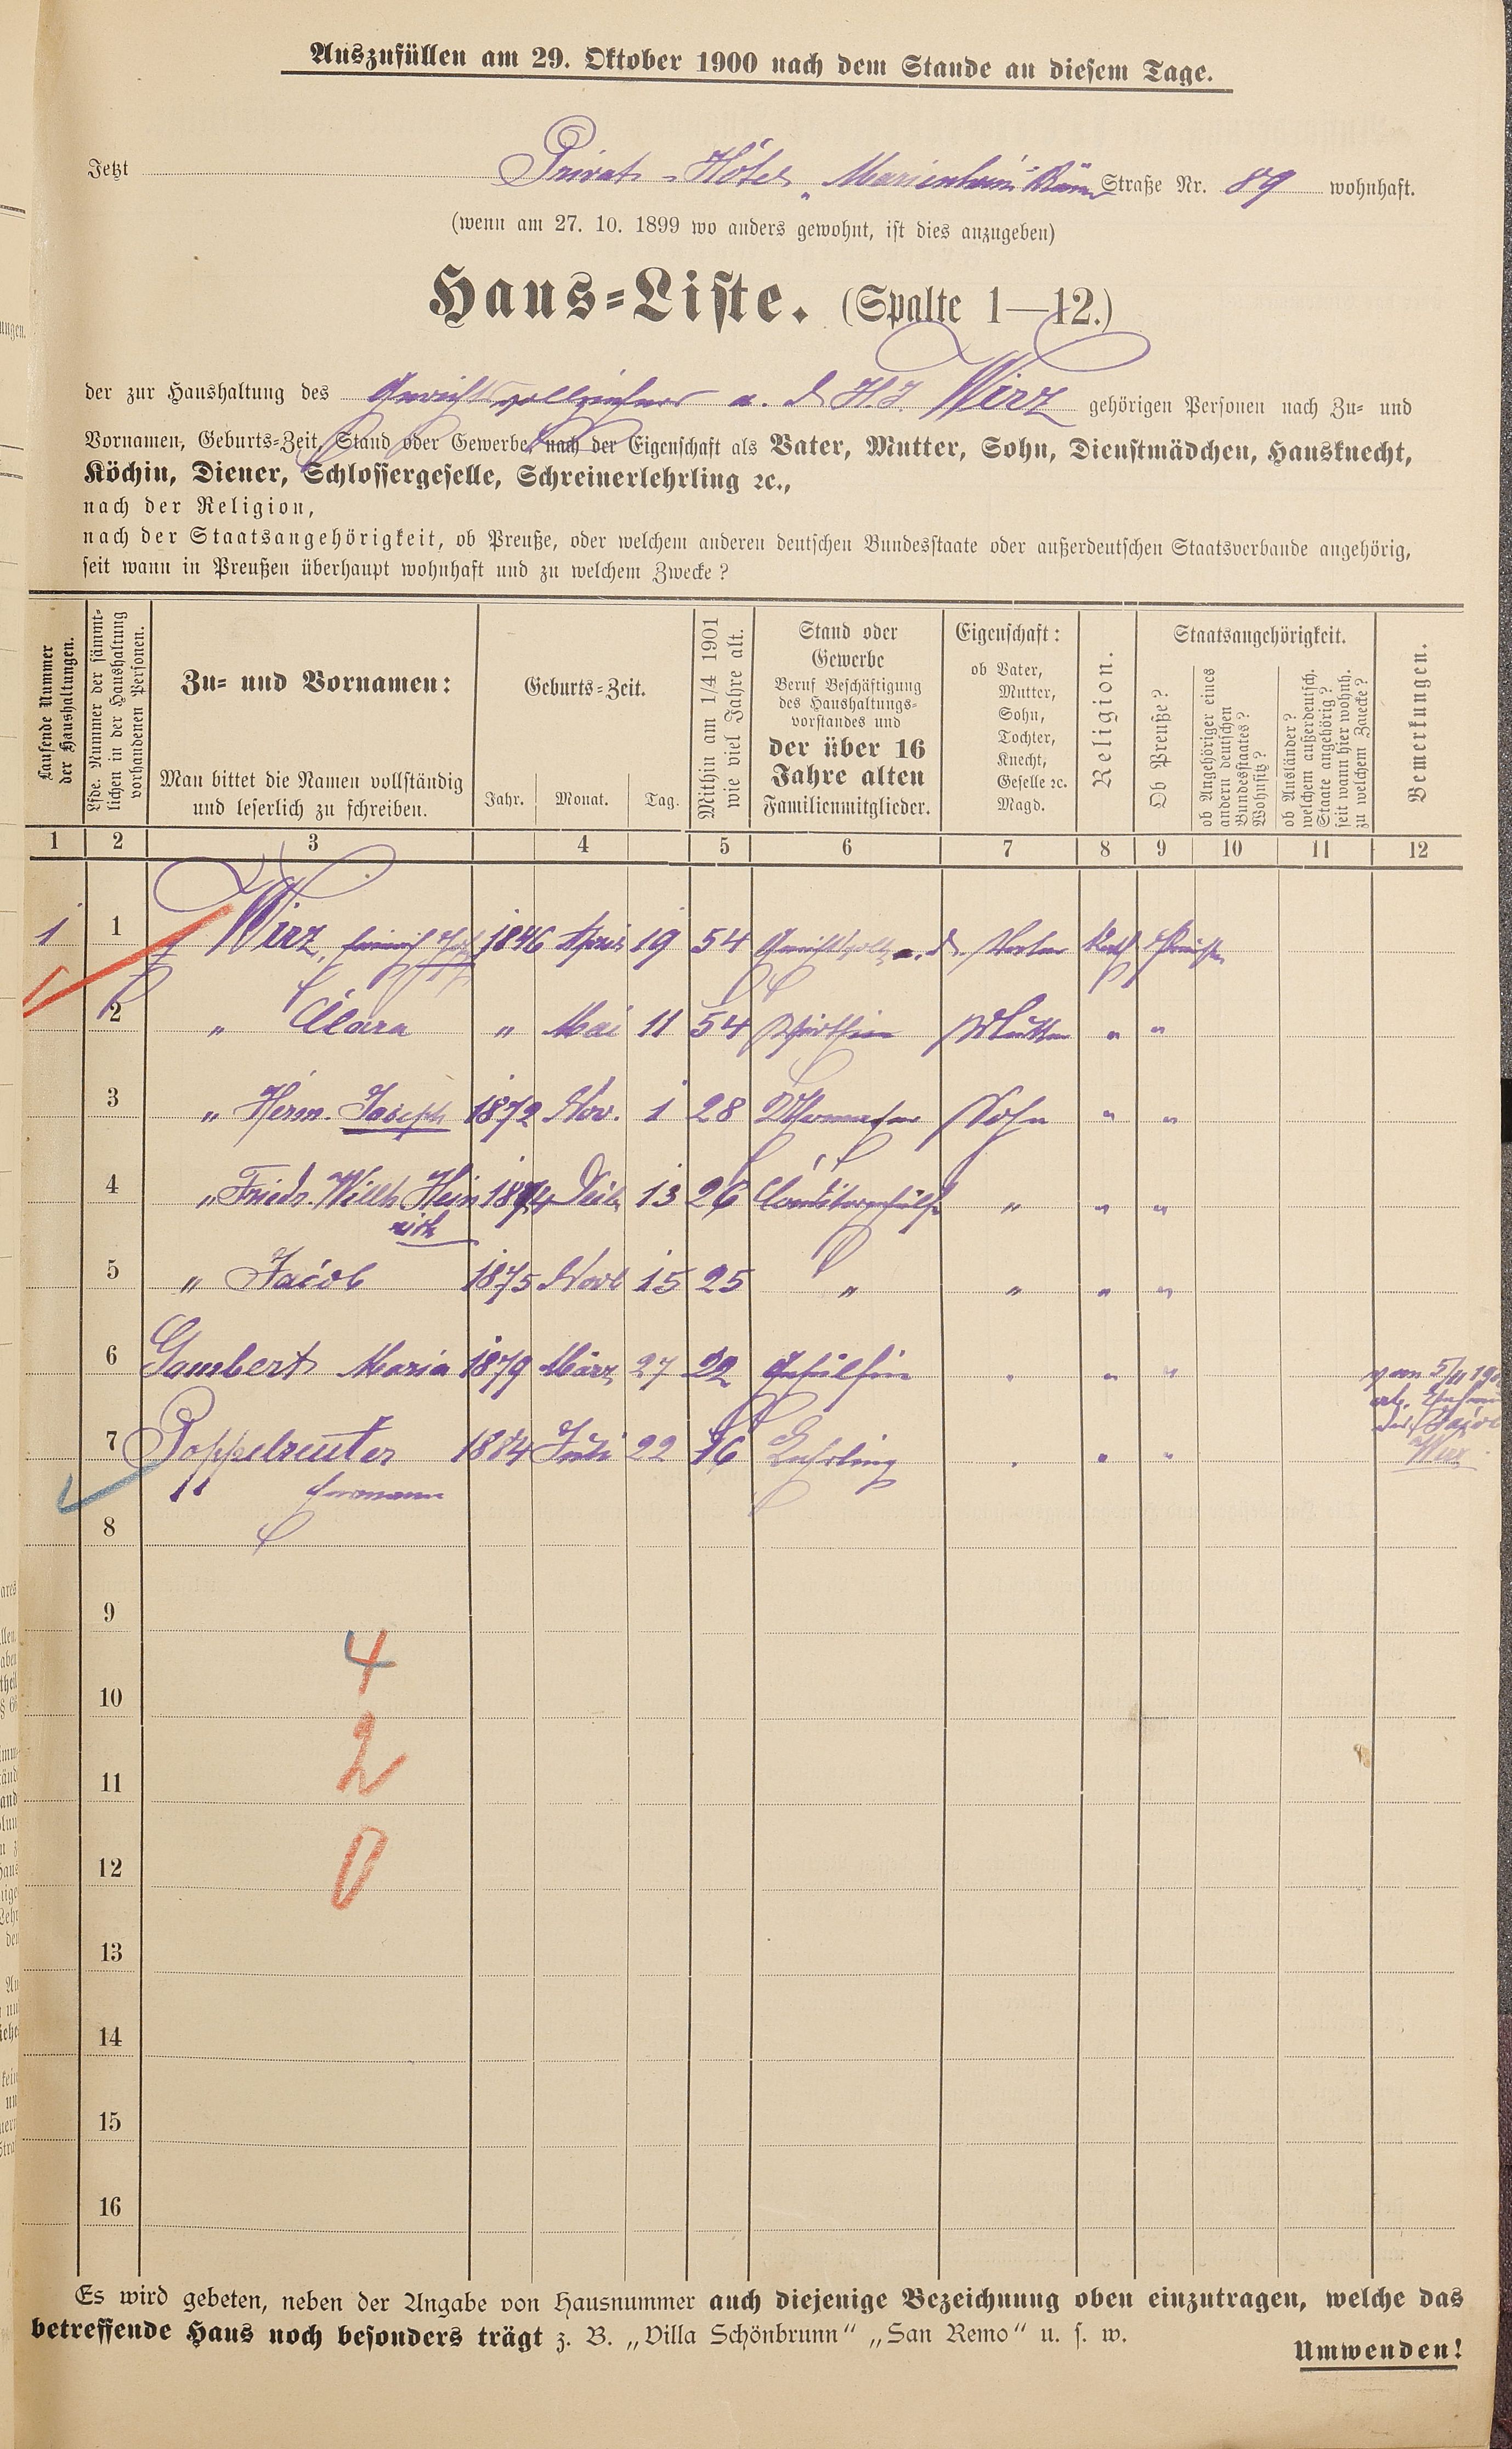 Auszufüllen am 29. Oktober 1900 nach dem Stande an diesem Tage.
Jetzt Privat-Hôtel „Marienheim" Straße Nr. 89 wohnhaft.
(wenn am 27. 10. 1899 wo anders gewohnt, ist dies anzugeben)
Haus-Liste. (Spalte 1—12.)
der zur Haushaltung des Gerichtsvollzieher a. D. H. J. Wirz gehörigen Personen nach Zu- und
Vornamen, Geburts-Zeit, Stand oder Gewerbe, nach der Eigenschaft als Vater, Mutter, Sohn, Dienstmädchen, Hausknecht,
Köchin, Diener, Schlossergeselle, Schreinerlehrling ꝛc.,
nach der Religion,
nach der Staatsangehörigkeit, ob Preuße, oder welchem anderen deutschen Bundesstaate oder außerdeutschen Staatsverbande angehörig,
seit wann in Preußen überhaupt wohnhaft und zu welchem Zwecke?
Laufende Nummer
der Haushaltungen.
Lfde. Nummer der sämmt-
lichen in der Haushaltung
vorhandenen Personen.
Zu- und Vornamen:
Man bittet die Namen vollständig
und leserlich zu schreiben.
Geburts-Zeit.
Jahr. Monat. Tag.
Mithin am 1/4 1901
wie viel Jahre alt.
Stand oder
Gewerbe
Beruf Beschäftigung
des Haushaltungs-
vorstandes und
der über 16
Jahre alten
Familienmitglieder.
Eigenschaft:
ob Vater,
Mutter,
Sohn,
Tochter,
Knecht,
Geselle ꝛc.
Magd.
Religion.
Staatsangehörigkeit.
Ob Preuße?
ob Angehöriger eines
andern deutschen
Bundesstaates?
Wohnsitz?
ob Ausländer?
welchem außerdeutsch.
Staate angehörig?
seit wann hier wohnh.
zu welchem Zwecke?
Bemerkungen.
1 2 3 4 5 6 7 8 9 10 11 12
1 1 Wirz, Heinrich Jos. 1846 April 19 54 Gerichtsvollz. a. D. Vater Kath Preuße
2 „ Clara „ Mai 11 54 Wirthin Mutter „ „
3 „ Herm. Joseph 1872 Nov. 1 28 Sohn „ „
4 „ Friedr. Wilh. Hein 1874 Dec. 13 26 Conditorgehülfe „ „ „
rich
5 „ Jacob 1875 Novb 15 25 „ „ „ „
6 Gambert Maria 1879 März 27 22 Gehülfin „ „ vom 5/11 190
7 Poppelreuter 1884 Juli 22 16 Lehrling „ „ Jacob
Hermann Wirz
8
9
4
10
2
11
12
0
13
14
15
16
Es wird gebeten, neben der Angabe von Hausnummer auch diejenige Bezeichnung oben einzutragen, welche das
betreffende Haus noch besonders trägt z. B. „Villa Schönbrunn" „San Remo" u. s. w.
Umwenden!